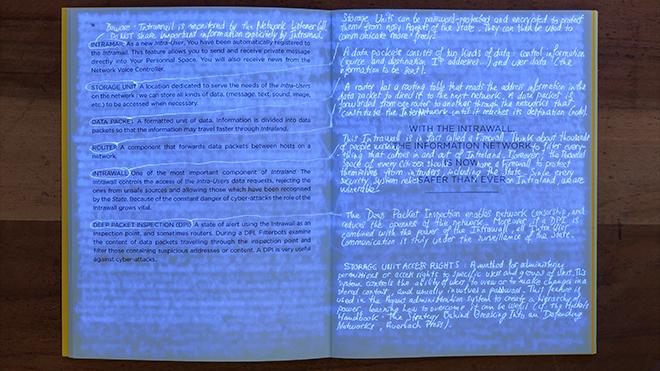 Beware - Intramail is monitored by the Network Listener
Do NOT share important information explicitly by Intramail
INTRAMAIL As a new Intra-User, You have been automatically registered to the
Intramail. This feature allows you to send and receive private message
directly into Your Personnal Space. You will also receive news from the
Network Voice Controller.
STORAGE UNIT A location dedicated to serve the needs of the Intra-Users
on the network; we can store all kinds of data, (message, text, sound, image,
etc.) to be accessed when necessary.
DATA PACKET A formatted unit of data. Information is divided into data
packets so that the information may travel faster through Intraland.
ROUTER A component that forwards data packets between hosts on a
network.
INTRAWALL One of the most important component of Intraland. The
Intrawall controls the access of the Intra-Users data requests, rejecting the
ones from unsafe sources and allowing those which have been recognised
by the State. Because of the constant danger of cyber-attacks the role of the
Intrawall grows vital.
DEEP PACKET INSPECTION (DPI) A state of alert using the Intrawall as an
inspection point, and sometimes routers. During a DPI, Filterbots examine
the content of data packets travelling through the inspection point and
filter those containing suspicious addresses or content. A DPI is very useful
against cyber-attacks.
Storage Units can be password-protected and encrypted to protect
them from nosy Agents of the State. They can thus be used to
communicate more "freely".
A data packets consists of two kinds of data: control information
(source and destination IP addresses...) and user data (the
information to be sent).
A router has a routing table that reads the address information in the
data packet to direct it to the next network. A data packet is
forwarded from one router to another through the networks that
constitute the Internetwork until it reaches its destination (node).
WITH THE INTRAWALL,
THE INFORMATION NETWORK
IS NOW
SAFER THAN EVER
This Intrawall is in fact called a Firewall. Think about thousands
of people working to filter every-
thing that comes in and out of Intraland. However, the Personal
Space of every Citizen should have a Firewall to protect
themselves from intruders, including the State. Since every
security system relies on Intraland, we are
vulnerable.
The Deep Packet Inspection enables network censorship and
reduces the openness of the network. Moreover if a DPI is
combined with the power of the Intrawall, all Intra-User
Communication is study under the surveillance of the State.
STORAGE UNIT ACCESS RIGHTS: A method for administering
permissions or access rights to specific users and groups of users. This
system controls the ability of user to view or to make changes in a
stored content, and usually involves a password. This feature is
used in the Argus administration system to create a hierarchy of
power, learning how to overcome it can be useful (cf. The Hacker's
Handbook: The Strategy Behind Breaking Into and Defending
Networks, Auerbach Press).